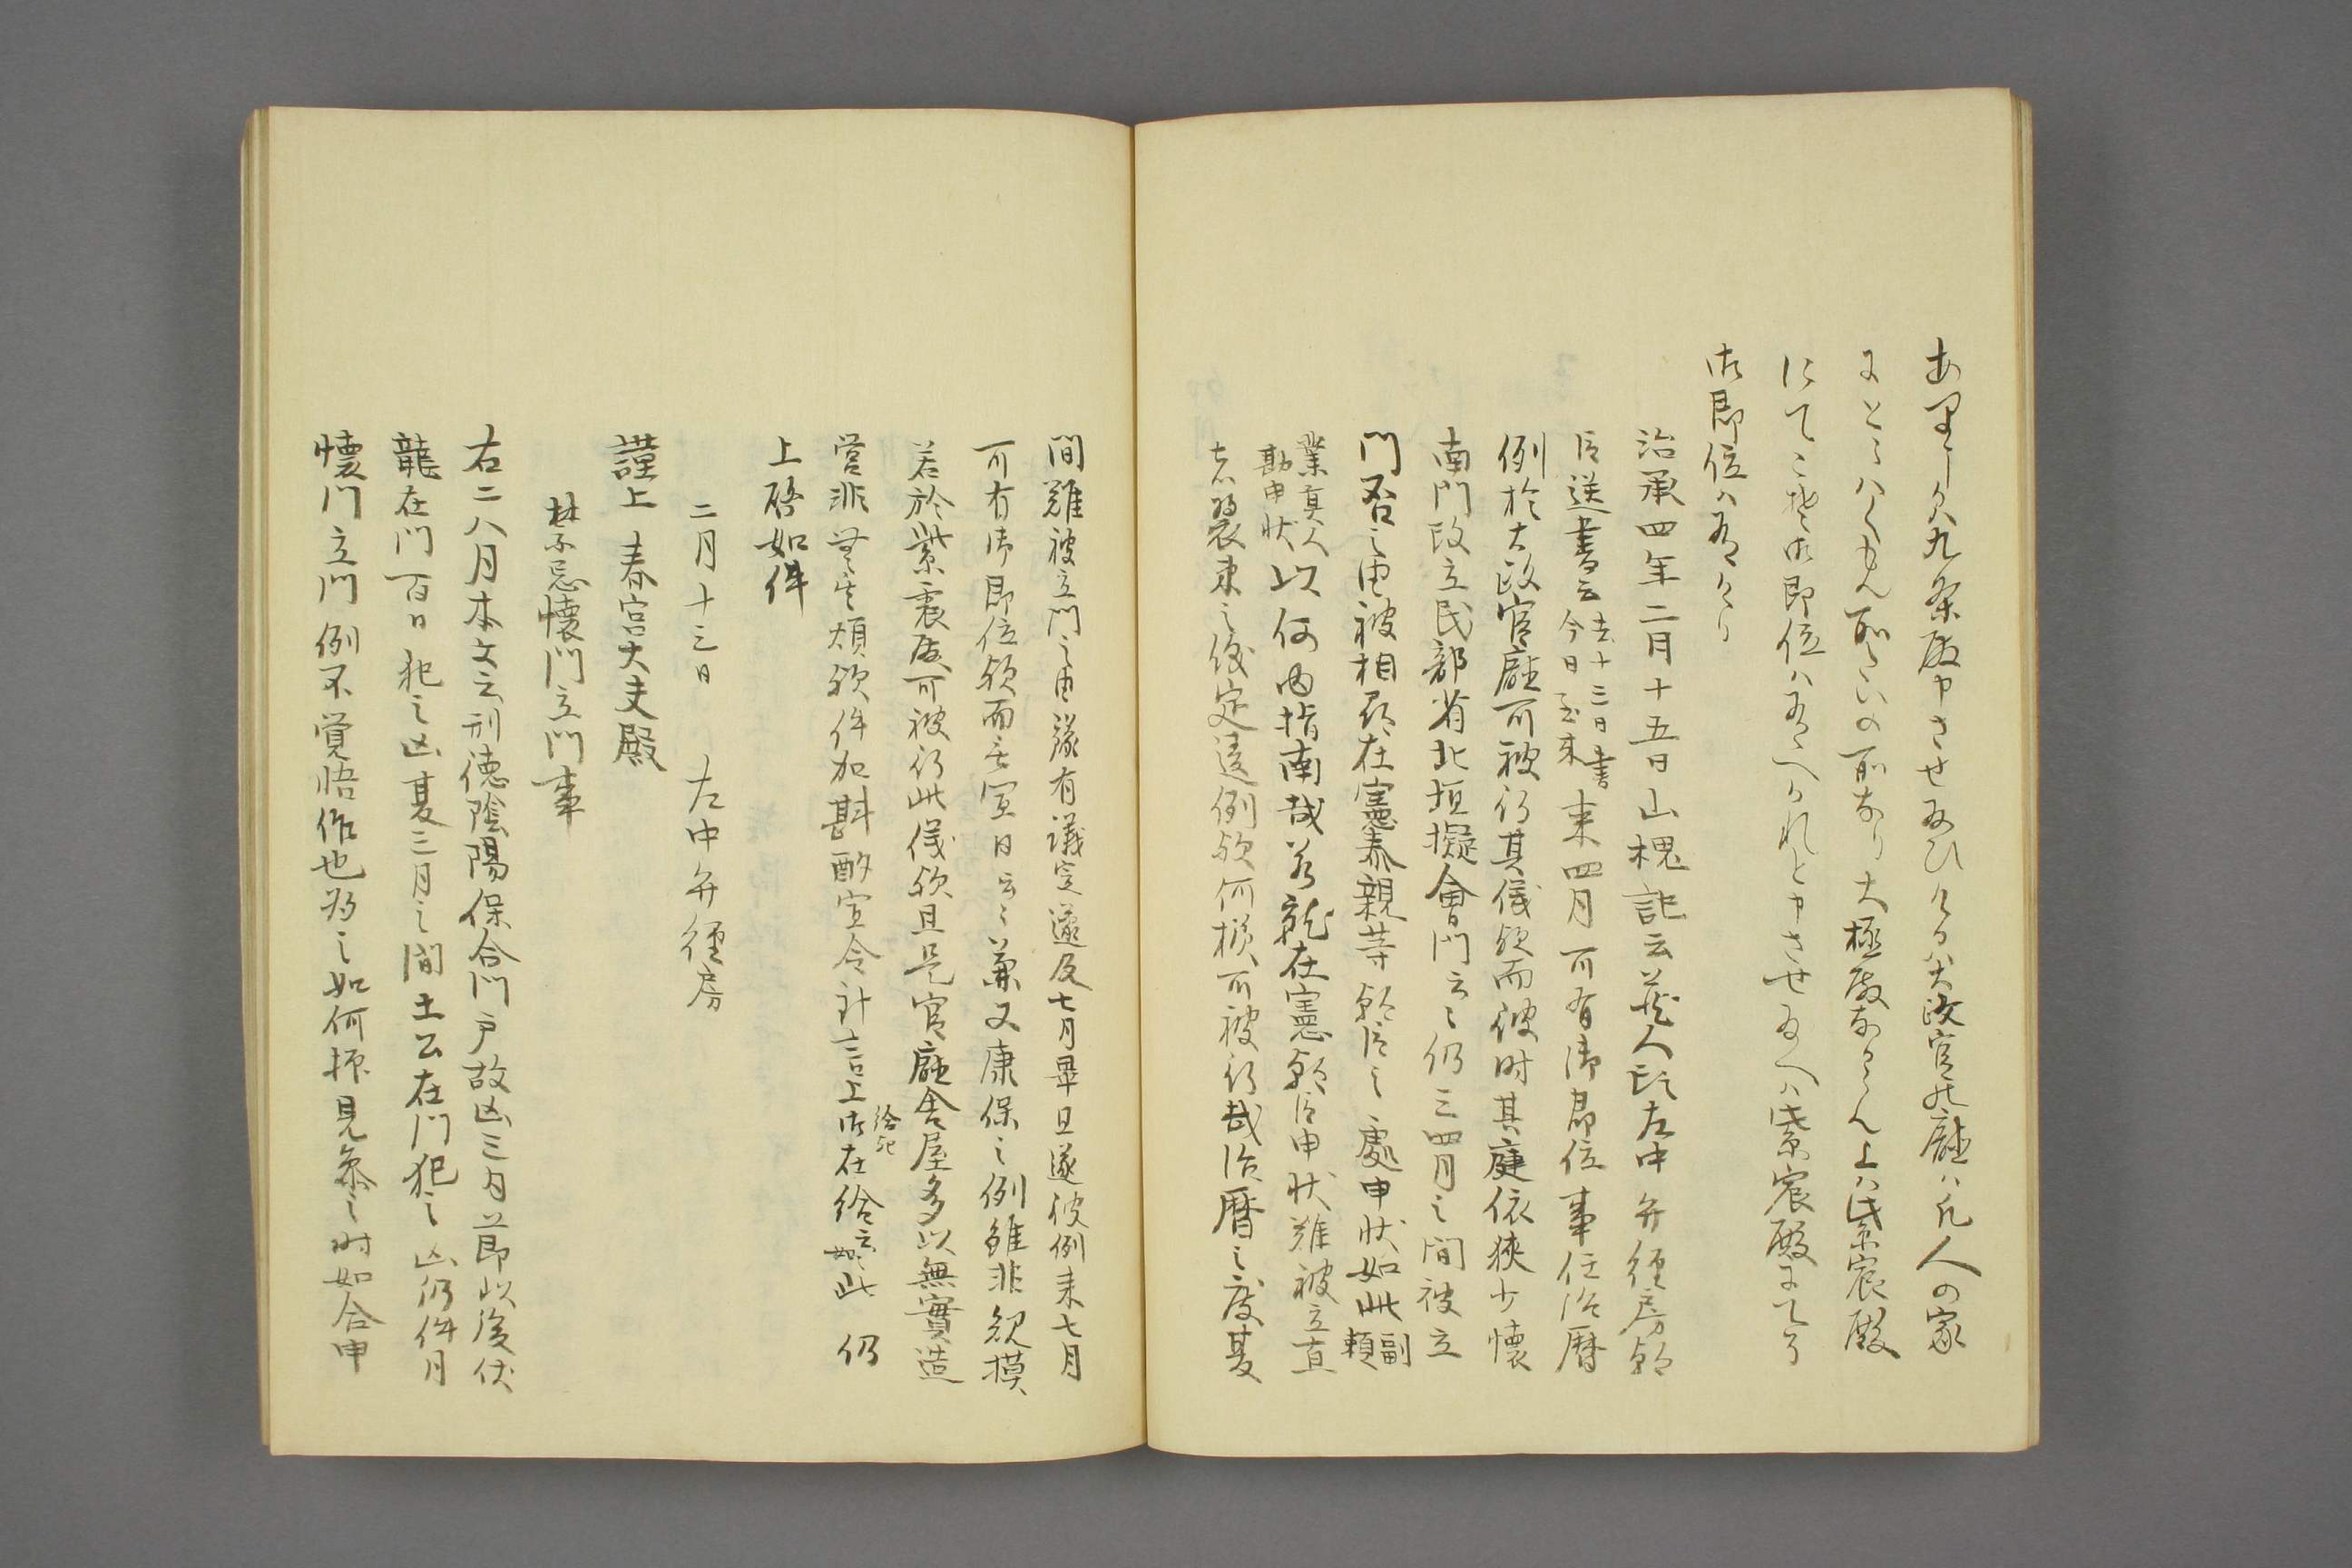 ありしを九条殿申させ給ひけるは大政官の廳は凡人の家
にとらはくもん所ていの所なり大極殿なからん上は紫宸殿
にてこそ御即位は有へけれと申させ給へは紫宸殿にてそ
御即位は有ける
治承四年二月十五日山槐記云蔵人頭左中弁経房朝
臣送書云去十三日書今日到来来四月可有御即位事任治暦
例於大政官廳可被行其儀歟而彼時其庭依狭少懐
南門改立民部省北垣擬會門云々仍三四月之間被立
門否之由被相尋在憲泰親等朝臣之處申状如此副頼
業真人勘申状以何為指南哉若就在憲朝臣申状難被立直
者以翌裏来之儀定違例歟何様可被行哉治暦之度夏
間難被立門之由縁有議定遂及七月畢且遂彼例来七月
可有御即位歟而無宜日云々兼又康保之例雖非規摸
若於紫震殿可被行此儀歟且是官廳舎屋多以無實造
營非無其煩歟件加斟酌宜令計言上御在給云々如此仍
上啓如件
二月十三日 左中弁経房
謹上 春宮大夫殿
禁忌懐門立門事
右二八月本文云刑徳陰陽保合門戸故凶三内節以後伏
龍在門百日犯之凶夏三月之間土公在門犯之凶仍件月
懐門立門例不覚悟作也為之如何捺見参之時如合申